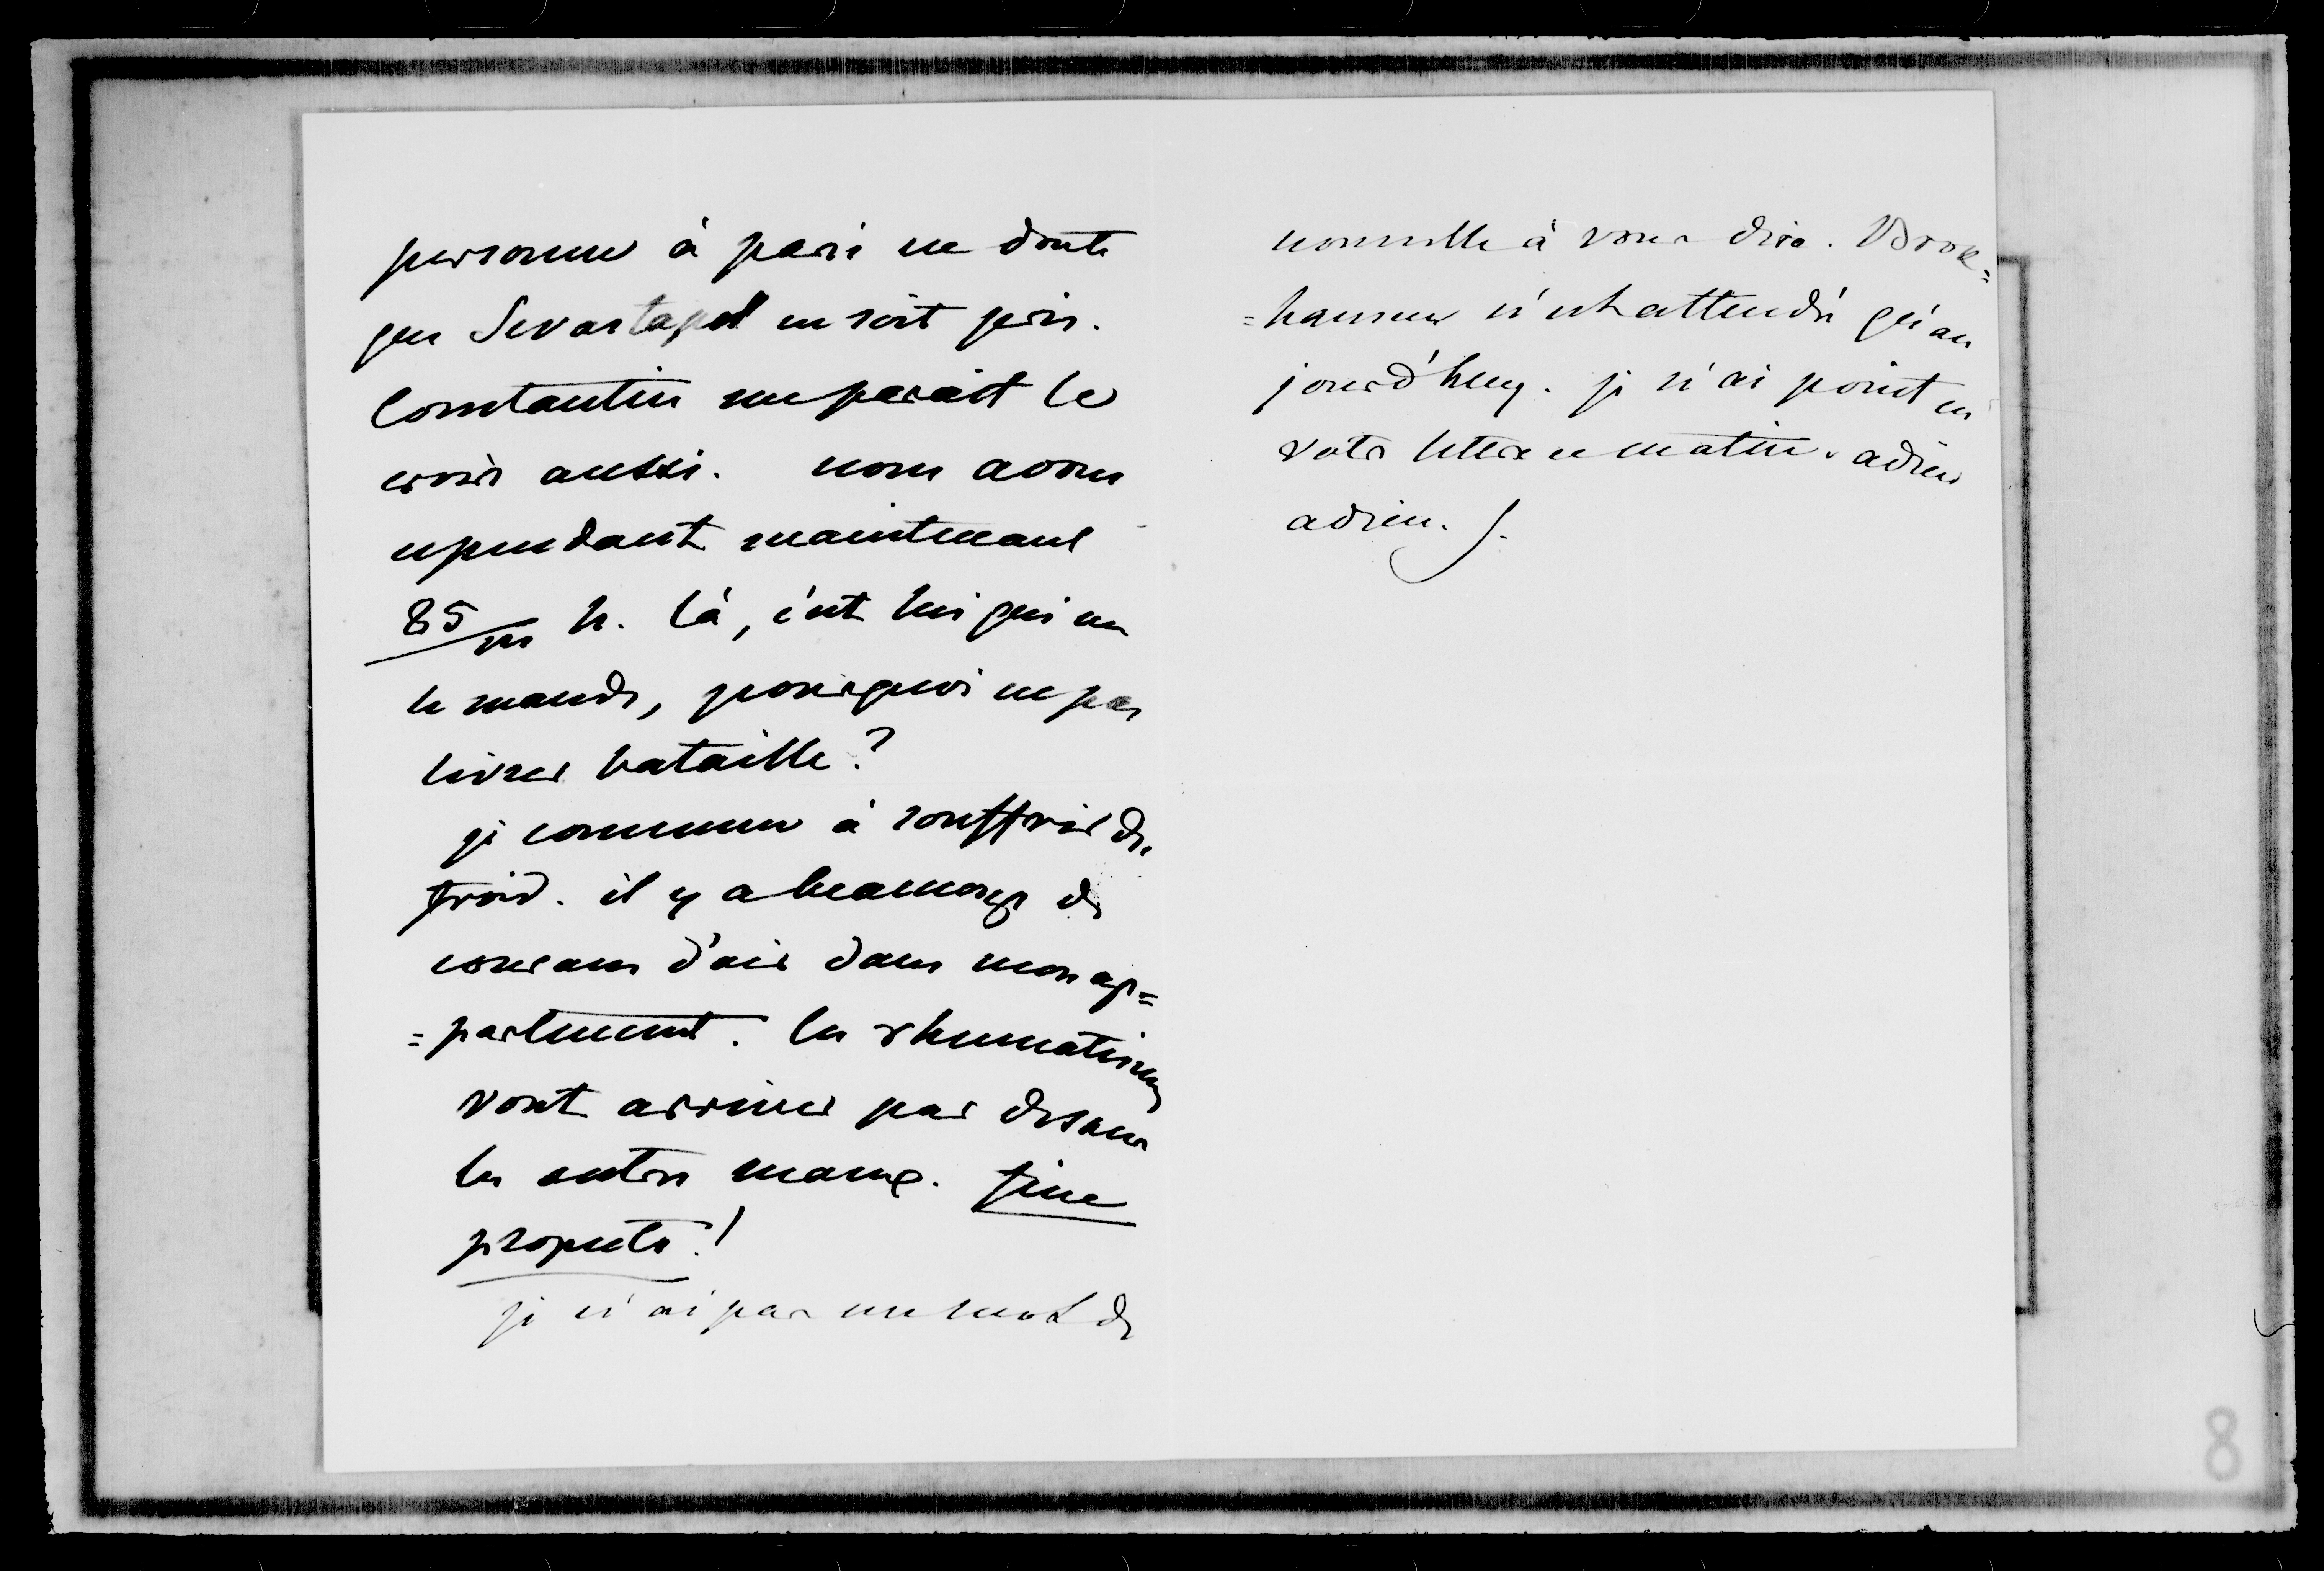 personne à paris ne doute
que Sevastapol ne soit pris.
Constantin me parait le
croire aussi. nous avons
cependant maintenant
85/m h. là, c'est lui qui me
le mande, pourquoi ne pas
livrer bataille?
je commence à souffrir du
froid. il y a beaucoup de
courans d'air dans mon ap=
=partement. les rhumatismes
vont arriver par dessus
les autres maux. fine
prospects!
je n'ai pas un mot de
nouvelle à vous dire. Brok=
=hausen n'est attendu qu'au
jourd'huy. je n'ai point eu
votre lettre ce matin. adieu
adieu.
8